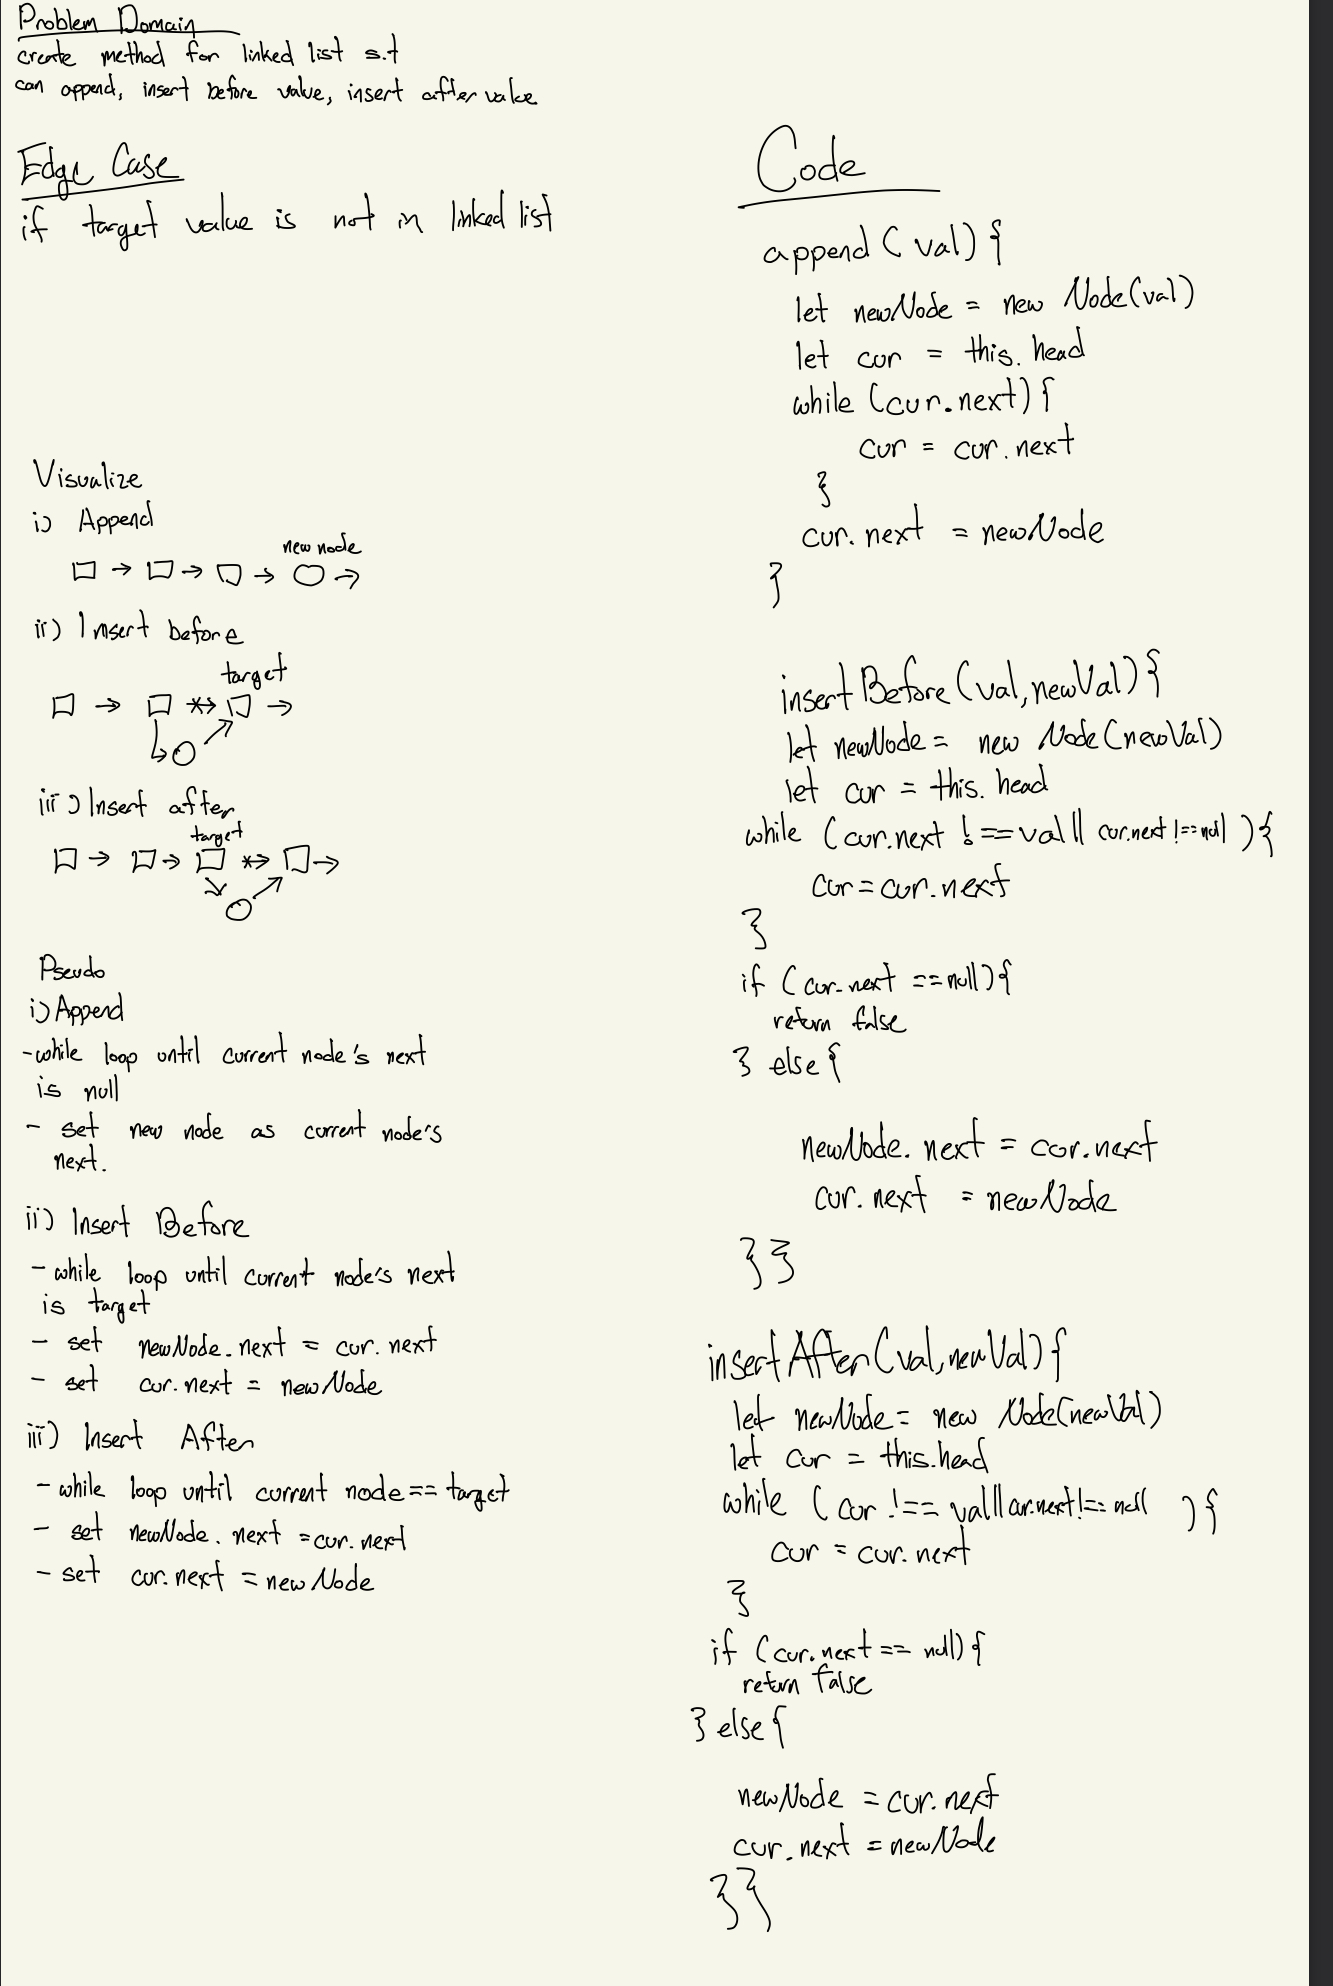 Problem Domain
create method for linked list s.t
can append, insert before value, insert after value
Edge Case
if target value is not in linked list
Visualize
i) Append
new node
ii) Insert before
target
iii) Insert after
target
Pseudo
i) Append
- while loop until current node's next
is null
- set new node as current node's
next.
ii) Insert Before
- while loop until current node's next
is target
- set newNode.next = cur.next
- set cur.next = newNode
iii) Insert After
- while loop until current node == target
- set newNode.next = cur.next
- set cur.next = newNode
Code
append(val){
let newNode = new Node(val)
let cur = this.head
while (cur.next){
cur = cur.next
}
cur.next = newNode
}
insertBefore(val,newVal){
let newNode = new Node(newVal)
let cur = this.head
while (cur.next !== val || cur.next !== null ){
cur = cur.next
}
if (cur.next == null){
return false
} else {
newNode.next = cur.next
cur.next = newNode
}}
insertAfter(val,newVal){
let newNode = new Node(newVal)
let cur = this.head
while (cur !== val || cur.next !== null ){
cur = cur.next
}
if (cur.next == null){
return false
} else {
newNode = cur.next
cur.next = newNode
}}